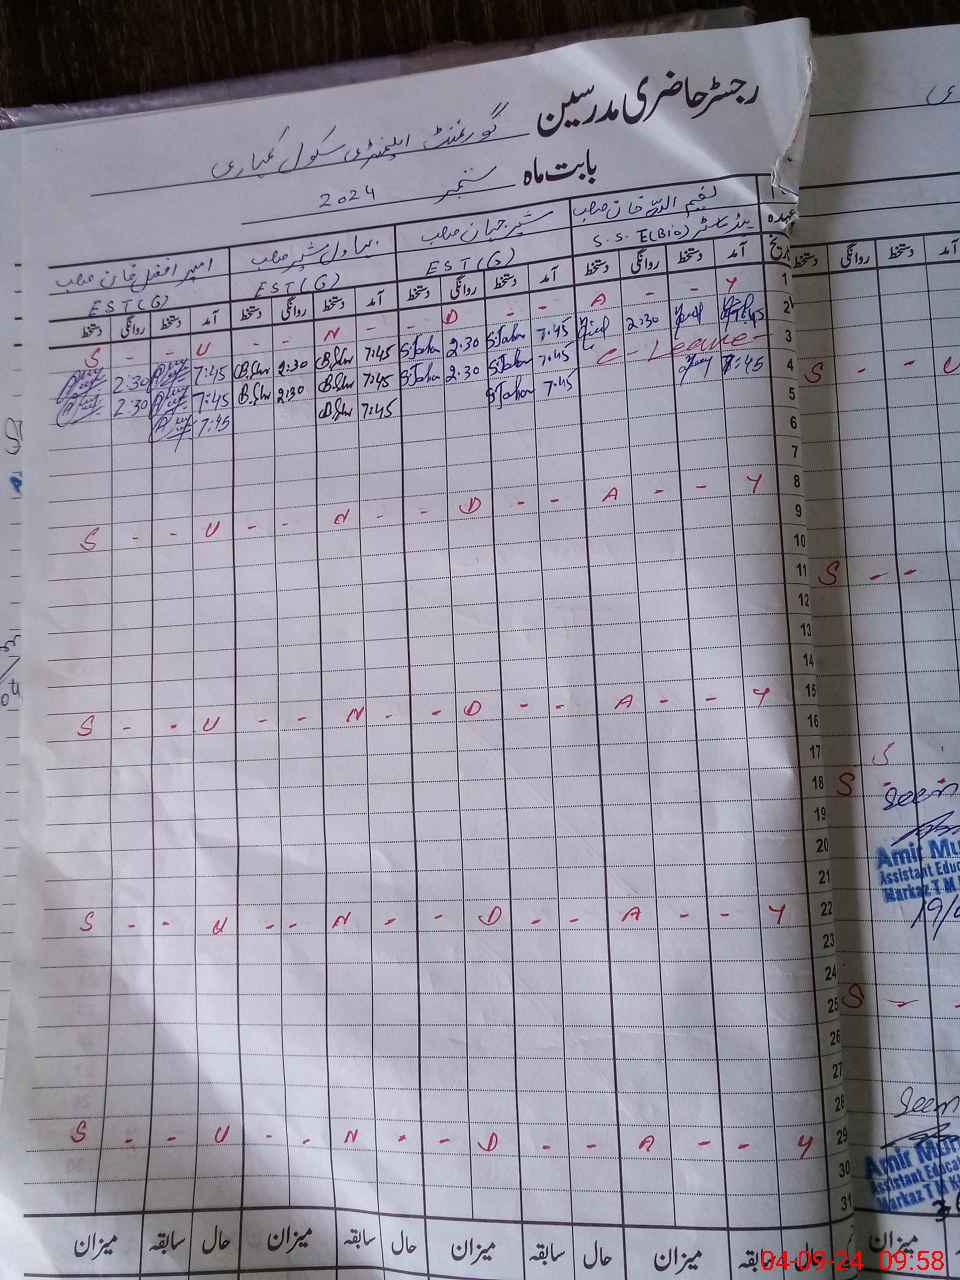 رجسٹر حاضری مدرسین گورنمنٹ ایلیمنٹری سکول کمیاری
بابت ماہ ستمبر 2024
خان صاحب شیر جہان صاحب بہاول شیر صاحب امیر افضل خان صاحب
عہدہ S.S.E(Bio) EST(G) EST(G) EST(G)
تاریخ آمد دستخط روانگی دستخط آمد دستخط روانگی دستخط آمد دستخط روانگی دستخط آمد دستخط روانگی دستخط
1 S - - U - - N - - D - - A - - Y
2 7:45 2:30 7:45 S.Jahan 2:30 S.Jahan 7:45 B.Sher 2:30 B.Sher 7:45 2:30
3 C-Leave- 7:45 S.Jahan 2:30 S.Jahan 7:45 B.Sher 2:30 B.Sher 7:45 2:30
4 7:45 7:45 S.Jahan 7:45 B.Sher 7:45
5
6
7
8 S - - U - - N - - D - - A - - Y
9
10
11
12
13
14
15 S - - U - - N - - D - - A - - Y
16
17
18
19
20
21
22 S - - U - - N - - D - - A - - Y
23
24
25
26
27
28
29 S - - U - - N - - D - - A - - Y
30
31
میزان حال سابقہ میزان حال سابقہ میزان حال سابقہ میزان
دستخط روانگی دستخط آمد
S - - U
S - -
S
S
Seen
Amir Mu
Assistant Educ
Markaz T M
19/
S -
Seen
Amir Mu
Assistant Educa
Markaz T M K
میزان
04-09-24 09:58